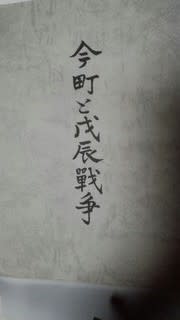 今町と戊辰戰争